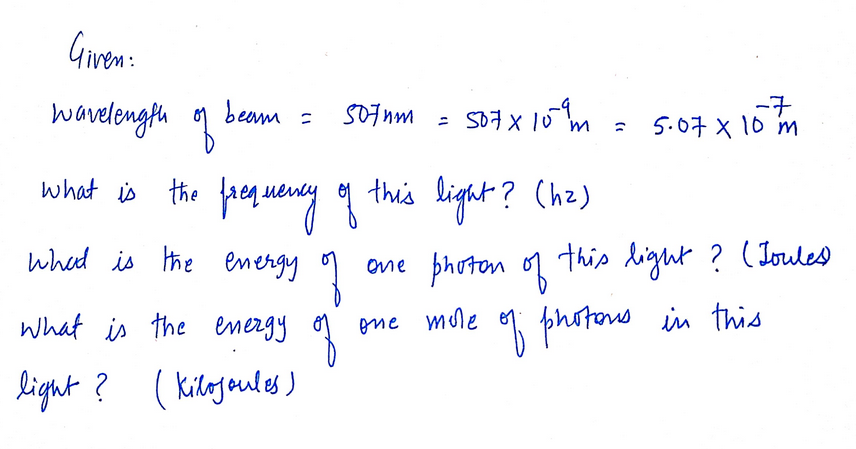 Given:
Wavelength of beam = 507nm = 507 × 10⁻⁹m = 5.07 × 10⁻⁷m
What is the frequency of this light? (hz)
What is the energy of one photon of this light? (Joules)
What is the energy of one mole of photons in this
light? (kilojoules)